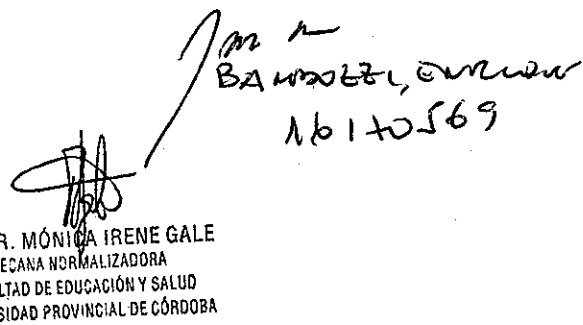 BANDOZZI, ENRIQUE
16170569
R. MÓNICA IRENE GALE
ECANA NORMALIZADORA
LTAD DE EDUCACIÓN Y SALUD
SIDAD PROVINCIAL DE CÓRDOBA